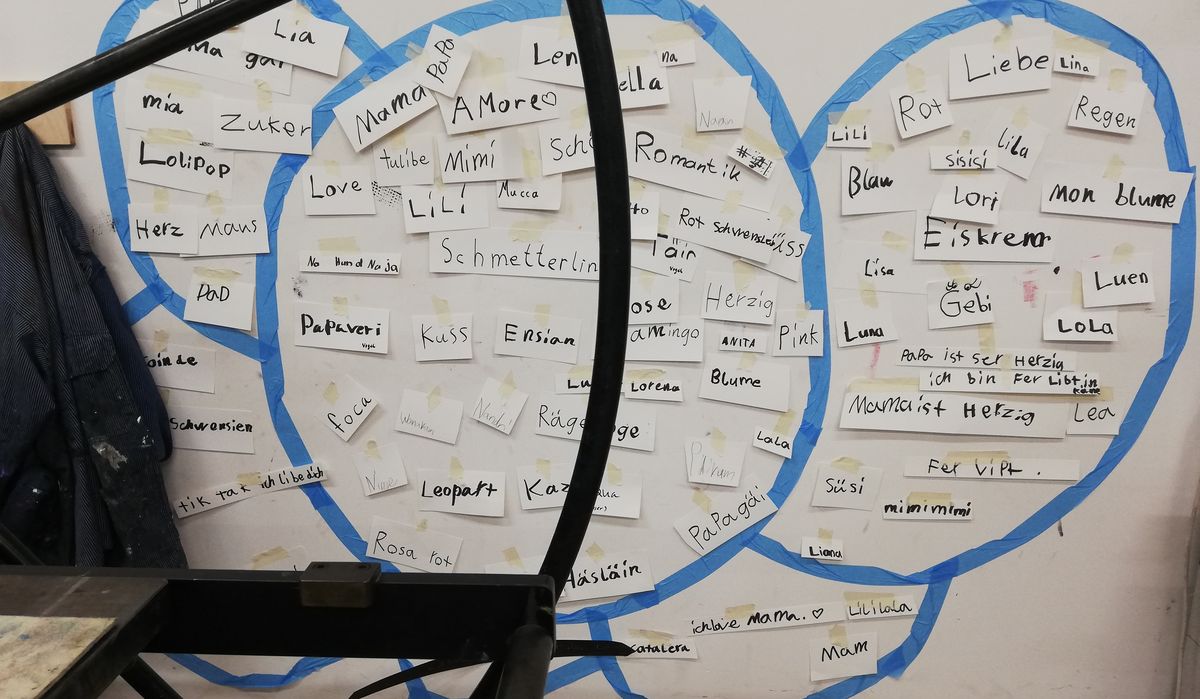 Lia
mia
Zuker
LoliPoP
Herz
Maus
PaD
Schwensien
tik tak ich libe dich
Mama
PaPa
AMore♡
Len
ella
na
tulibe
Mimi
Schö
Romantik
Love
LiLi
Mucca
Rot schwensien
üss
No Hund Naja
Schmetterlin
Tair
Vogel
ose
Herzig
PaPaveri
Vogel
Kuss
Ensian
amingo
ANITA
Pink
Lu
Lorena
Blume
foca
Räge
ge
LaLa
Leopart
Kaz
PaPagäi
Rosa rot
Häsläin
Liebe
Lina
Rot
Regen
LiLi
sisisi
Lila
Blau
Lori
Mon blume
Eiskrem
Lisa
Luen
Gebi
Luna
LoLa
PaPa ist ser Herzig
ich bin Fer Libt in
Mama ist Herzig
Lea
Fer Vipt .
Süsi
mimimimi
Liana
ich love Mama. ♡
LiLiLaLa
catalera
Mam